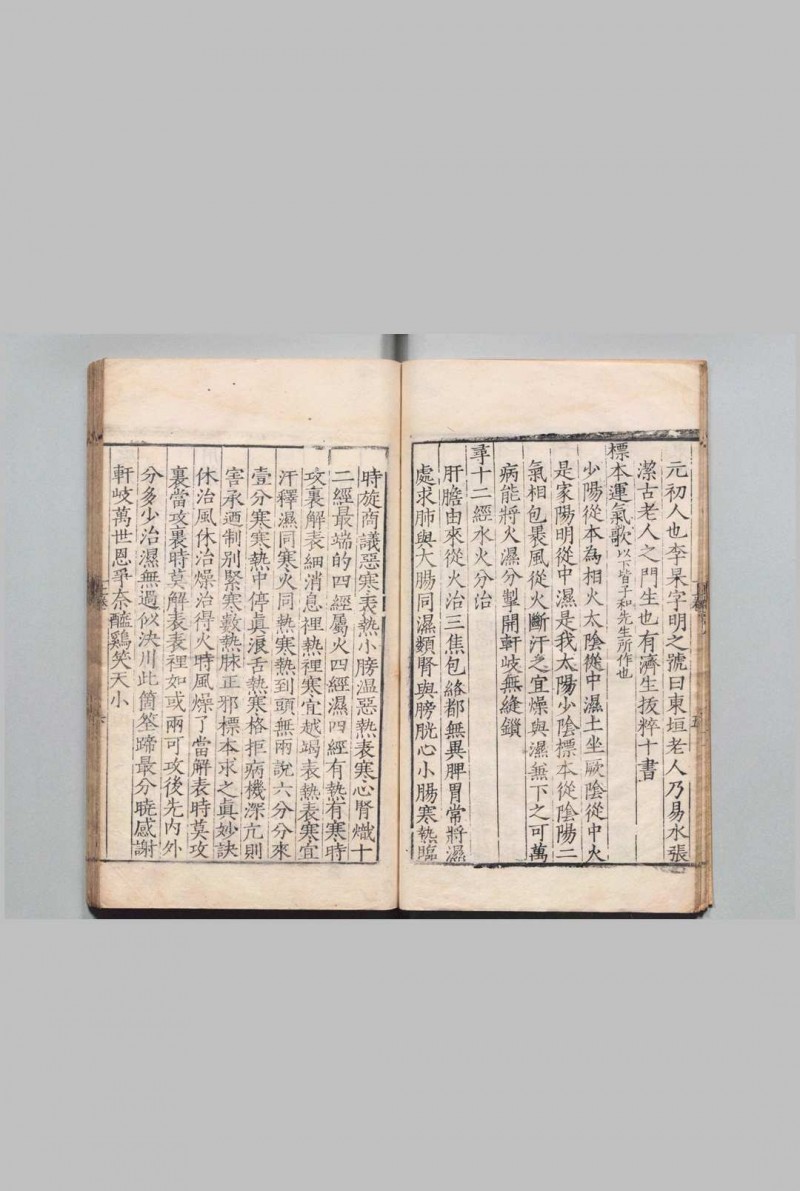 元初人也李杲字明之號曰東垣老人乃易水張
潔古老人之門生也有濟生拔粹十書
標本運氣歌以下皆子和先生所作也
少陽從本為相火太陰從中濕土坐厥陰從中火
是家陽明從中濕是我太陽少陰標本從陰陽二
氣相包裹風從火斷汗之宜燥與濕無下之可萬
病能將火濕分掣開軒岐無縫鎖
辜十二經水火分治
肝膽由來從火治三焦包絡都無異脾胃常將濕
處求肺與大腸同濕類腎與膀胱心小腸寒熱臨
時旋商議惡寒表熱小膀溫惡熱表寒心腎熾十
二經最端的四經屬火四經濕四經有熱有寒時
攻裏解表細消息裡熱裡寒宜越竭表熱表寒宜
汗釋濕同寒火同熱寒熱到頭無兩說六分分來
壹分寒寒熱中停真浪舌熱寒格拒病機深亢則
害承迺制別緊寒數熱脉正邪標本求之真妙訣
休治風休治燥治得火時風燥了當解表時莫攻
裏當攻裏時莫解表表裡如或兩可攻後先內外
分多少治濕無過似決川此箇筌蹄最分曉感謝
軒岐萬世恩爭奈醯鷄笑天小